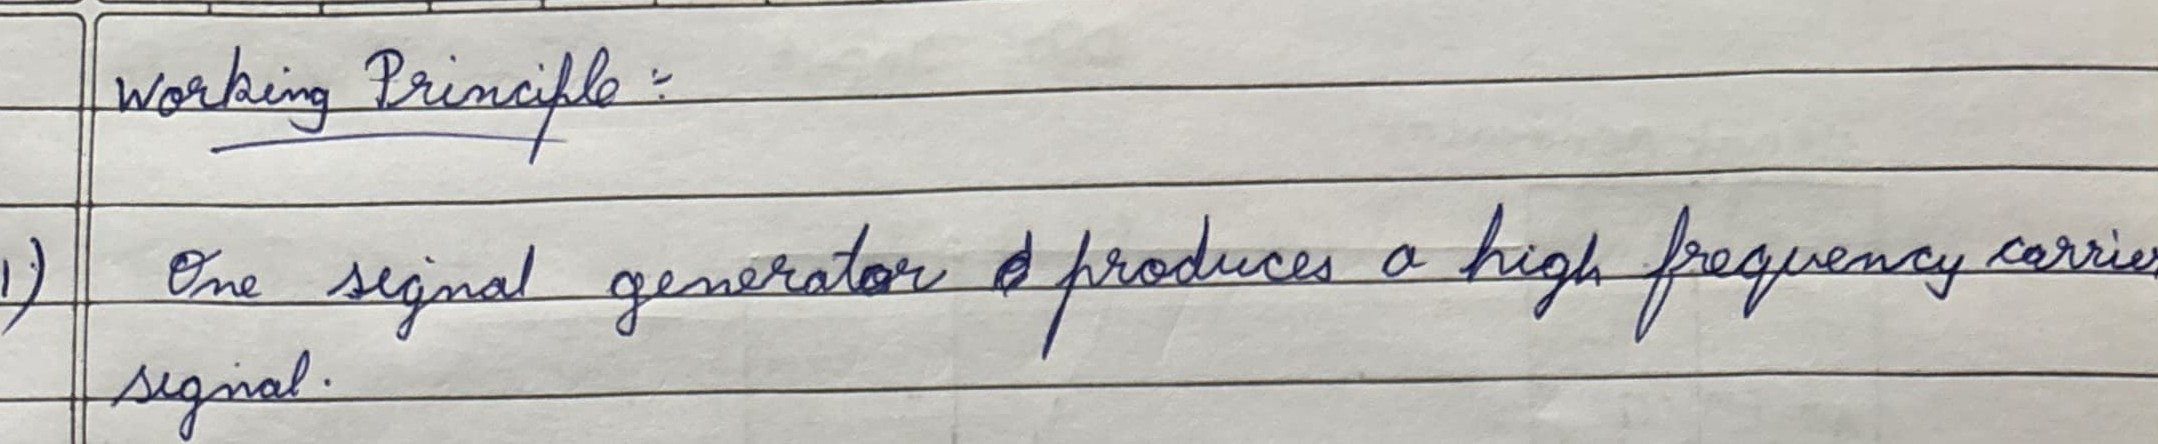 Working Principle :-
1) One signal generator produces a high frequency carrier
signal.